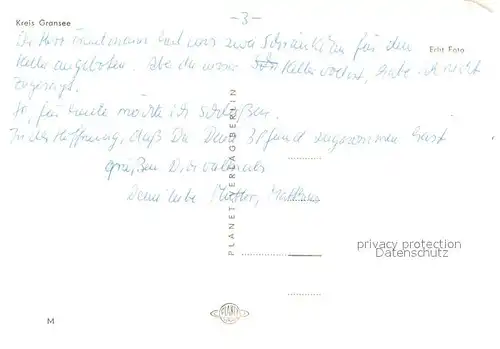 Kreis Gransee
- 3 -
Der Herr hat uns zwei Schränkchen für den
Echt Foto
Keller angeboten. Aber da unser Keller voll ist, habe ich nicht
zugesagt.
So, für heute möchte ich schließen.
In der Hoffnung, daß Du Dein Pfund zugenommen hast
grüßen Dich vielmals
Deine liebe Mutter,
PLANET-VERLAG-BERLIN
privacy protection
Datenschutz
PLANET
M